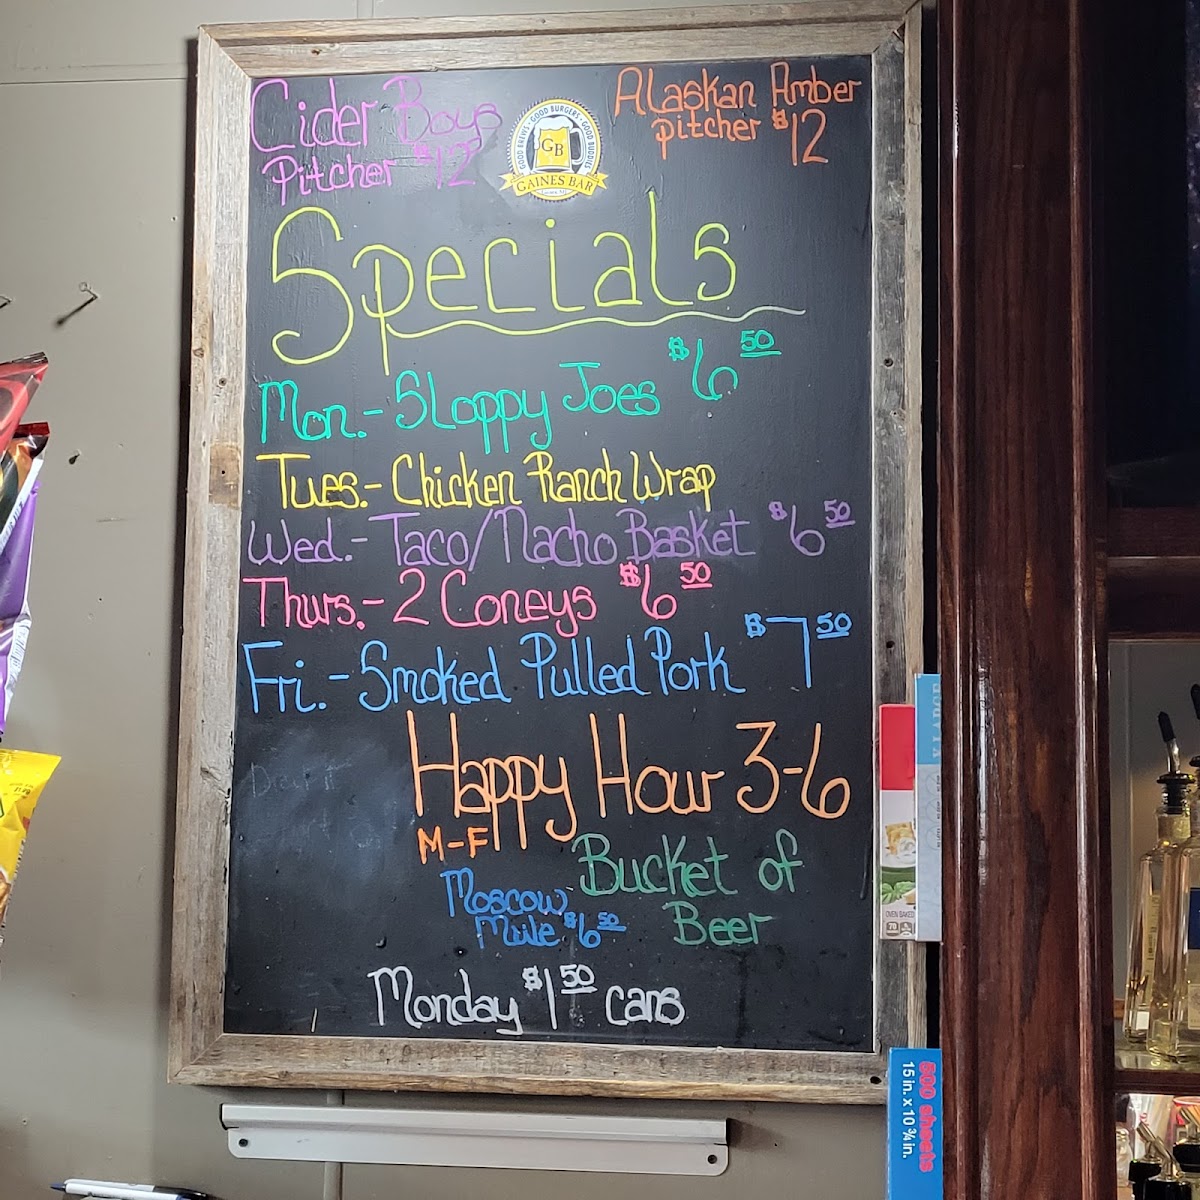 Cider Boys
Pitcher $12
GOOD BREWS · GOOD BURGERS · GOOD BUDDIES
GB
GAINES BAR
Alaskan Amber
pitcher $12
Specials
Mon.- Sloppy Joes $6 50
Tues.- Chicken Ranch Wrap
Wed.- Taco/Nacho Basket $6 50
Thurs.- 2 Coneys $6 50
Fri.- Smoked Pulled Pork $7 50
Happy Hour 3-6
M-F
Bucket of
Beer
Moscow
Mule $6 50
Monday $1 50 cans
X-LARGE
OVEN BAKED
70
500 sheets
15 in. x 10 3/4 in.